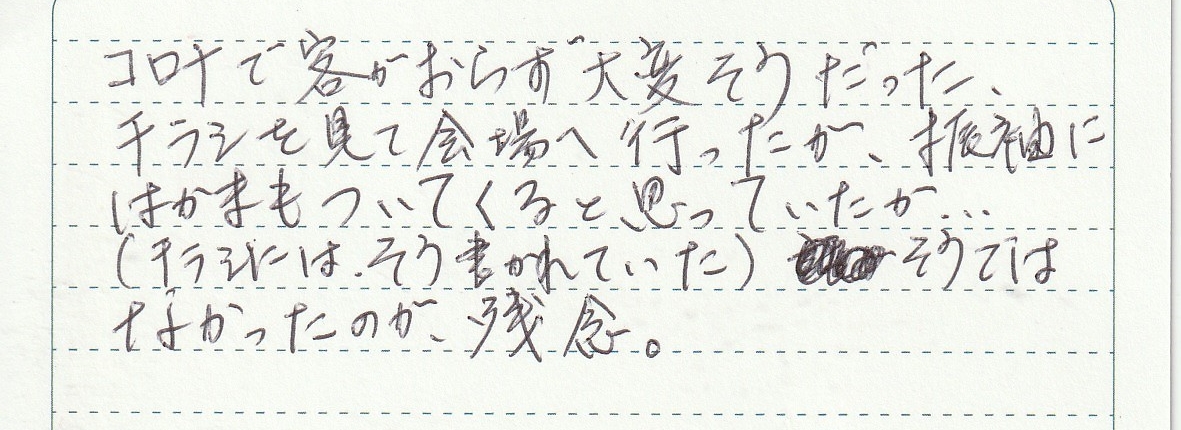 コロナで客がおらず大変そうだった、
チラシを見て会場へ行ったが、振袖に
はかまもついてくると思っていたが…
(チラシには、そう書かれていた) そうでは
なかったのが、残念。